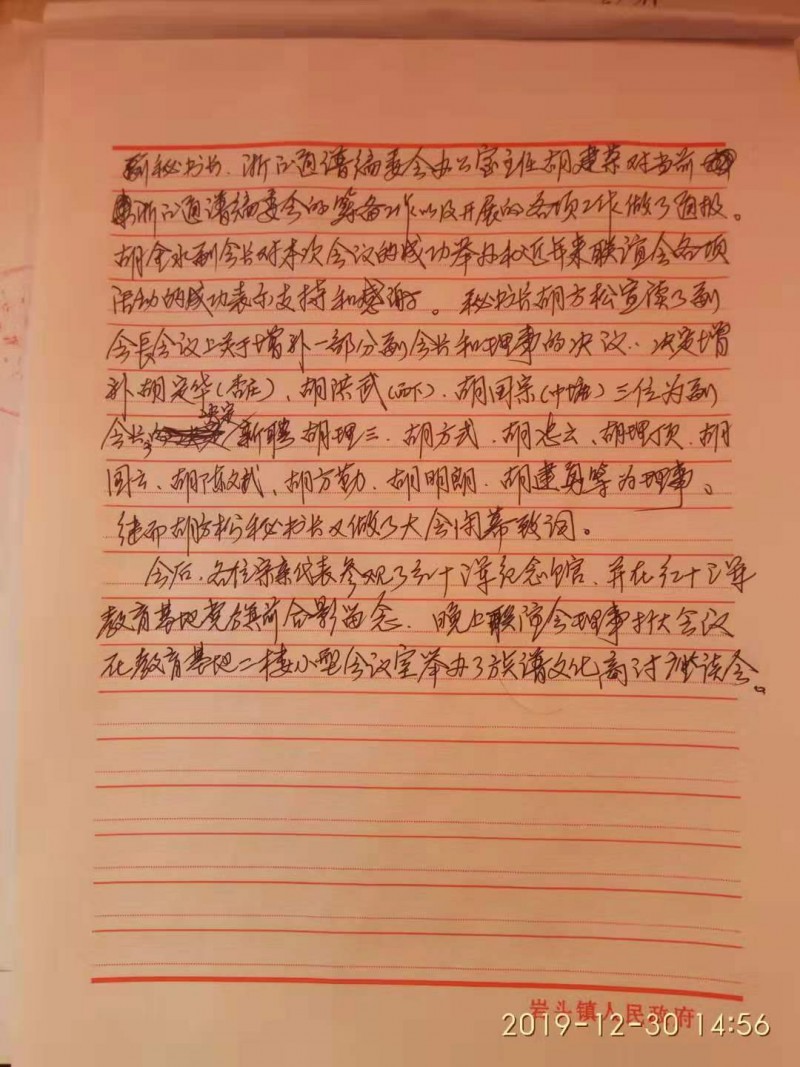 副秘书长、浙江通谱编委会办公室主任胡建荣对当前
浙江通谱编委会的筹备工作以及开展的各项工作做了通报。
胡金水副会长对本次会议的成功举办和近年来联谊会各项
活动的成功表示支持和感谢。秘书长胡方松宣读了副
会長会议上关于增补一部分副会长和理事的决议:决定增
补胡安华(杏庄)、胡洪武(西下)、胡国宗(中塘)三位为副
会长,决定新聘胡理三、胡方武、胡忠云、胡理顶、胡
国云、胡陈斌、胡方勤、胡明朗、胡建勇等为理事。
继而胡方松秘书长又做了大会闭幕致词。
会后,各位宗亲代表参观了红十三军纪念馆,并在红十三军
教育基地党旗前合影留念。晚上联谊会理事扩大会议
在教育基地二楼小型会议室举办了族谱文化商讨座谈会。
岩头镇人民政府
2019-12-30 14:56